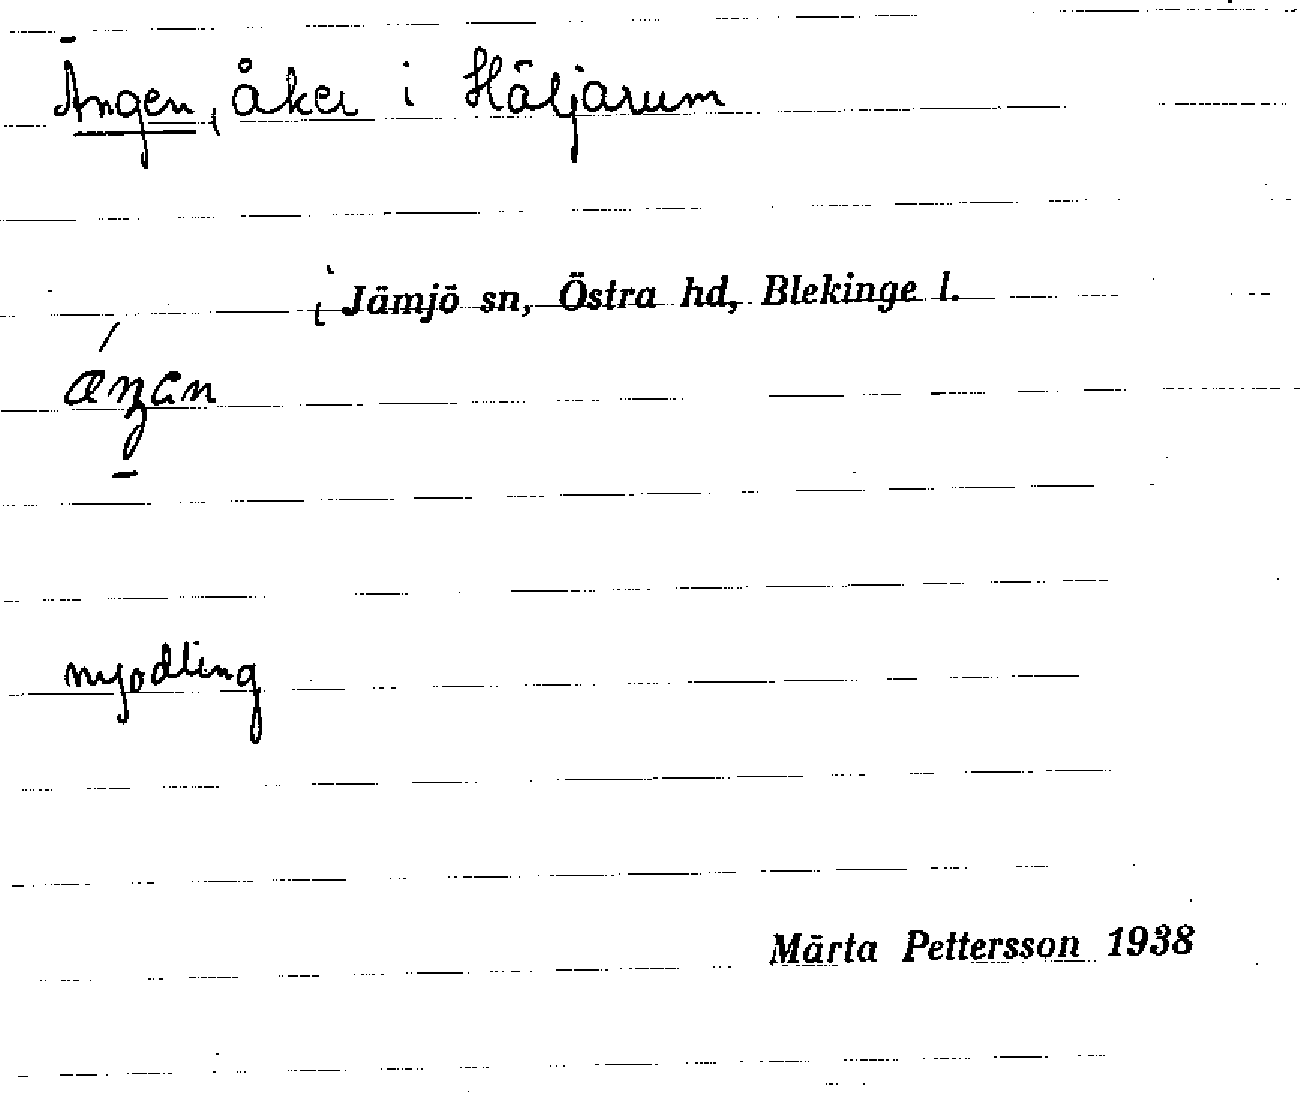 Ängen, åker i Häljarum
i Jämjö sn, Östra hd, Blekinge l.
nyodling
Märta Pettersson 1938